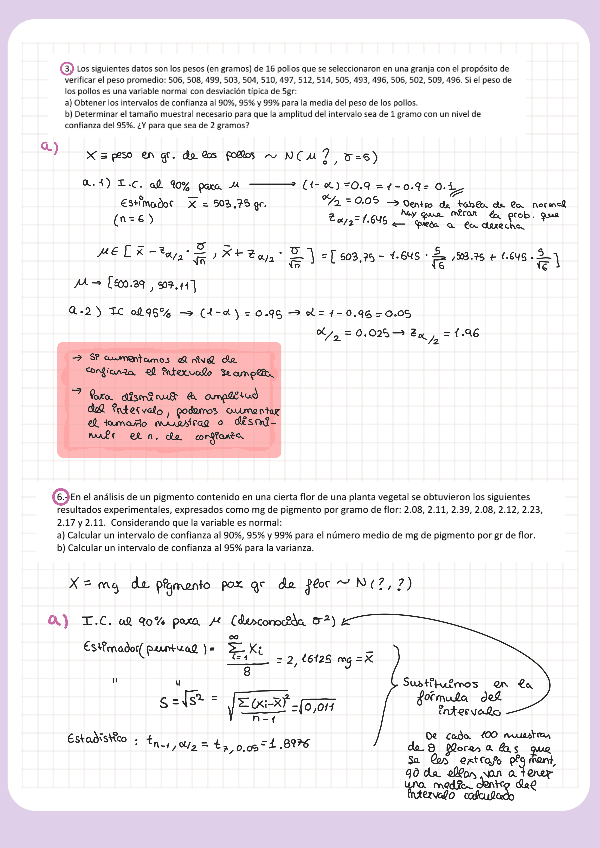 3. Los siguientes datos son los pesos (en gramos) de 16 pollos que se seleccionaron en una granja con el propósito de
verificar el peso promedio: 506, 508, 499, 503, 504, 510, 497, 512, 514, 505, 493, 496, 506, 502, 509, 496. Si el peso de
los pollos es una variable normal con desviación típica de 5gr:
a) Obtener los intervalos de confianza al 90%, 95% y 99% para la media del peso de los pollos.
b) Determinar el tamaño muestral necesario para que la amplitud del intervalo sea de 1 gramo con un nivel de
confianza del 95%. ¿Y para que sea de 2 gramos?
a)
X ≡ peso en gr. de los pollos ~ N(μ?, σ=5)
a.1) I.C. al 90% para μ → (1-α) = 0.9 = 1-0.9 = 0.1
Estimador x̄ = 503,75 gr.
(n=6)
α/2 = 0.05 → Dentro de tabla de la normal
hay que mirar la prob. que
Zα/2 = 1.645 ← queda a la derecha
μ ∈ [x̄ - zα/2 · σ/√n, x̄ + zα/2 · σ/√n] = [503,75 - 1.645 · 5/√6, 503.75 + 1.645 · 5/√6]
μ → [500.39, 507.11]
a.2) IC al 95% → (1-α) = 0.95 → α = 1-0.95 = 0.05
α/2 = 0.025 → zα/2 = 1.96
→ Si aumentamos el nivel de
confianza el intervalo se amplia
→ Para disminuir la amplitud
del intervalo, podemos aumentar
el tamaño muestral o dismi-
nuir el n. de confianza
6.- En el análisis de un pigmento contenido en una cierta flor de una planta vegetal se obtuvieron los siguientes
resultados experimentales, expresados como mg de pigmento por gramo de flor: 2.08, 2.11, 2.39, 2.08, 2.12, 2.23,
2.17 y 2.11. Considerando que la variable es normal:
a) Calcular un intervalo de confianza al 90%, 95% y 99% para el número medio de mg de pigmento por gr de flor.
b) Calcular un intervalo de confianza al 95% para la varianza.
X = mg de pigmento por gr de flor ~ N(?,?)
a) I.C. al 90% para μ (desconocida σ²)
Estimador (puntual) = ∑ᵢ₌₁^∞ Xi / 8 = 2,16125 mg = x̄
" " S = √s² = √(∑(xi-x̄)² / n-1) = √0,011
Estadístico : tn-1, α/2 = t7, 0.05 = 1,8976
Sustituimos en la
fórmula del
intervalo
De cada 100 muestras
de 8 flores a las que
se les extrajo pigment,
90 de ellas van a tener
una media dentro del
intervalo calculado